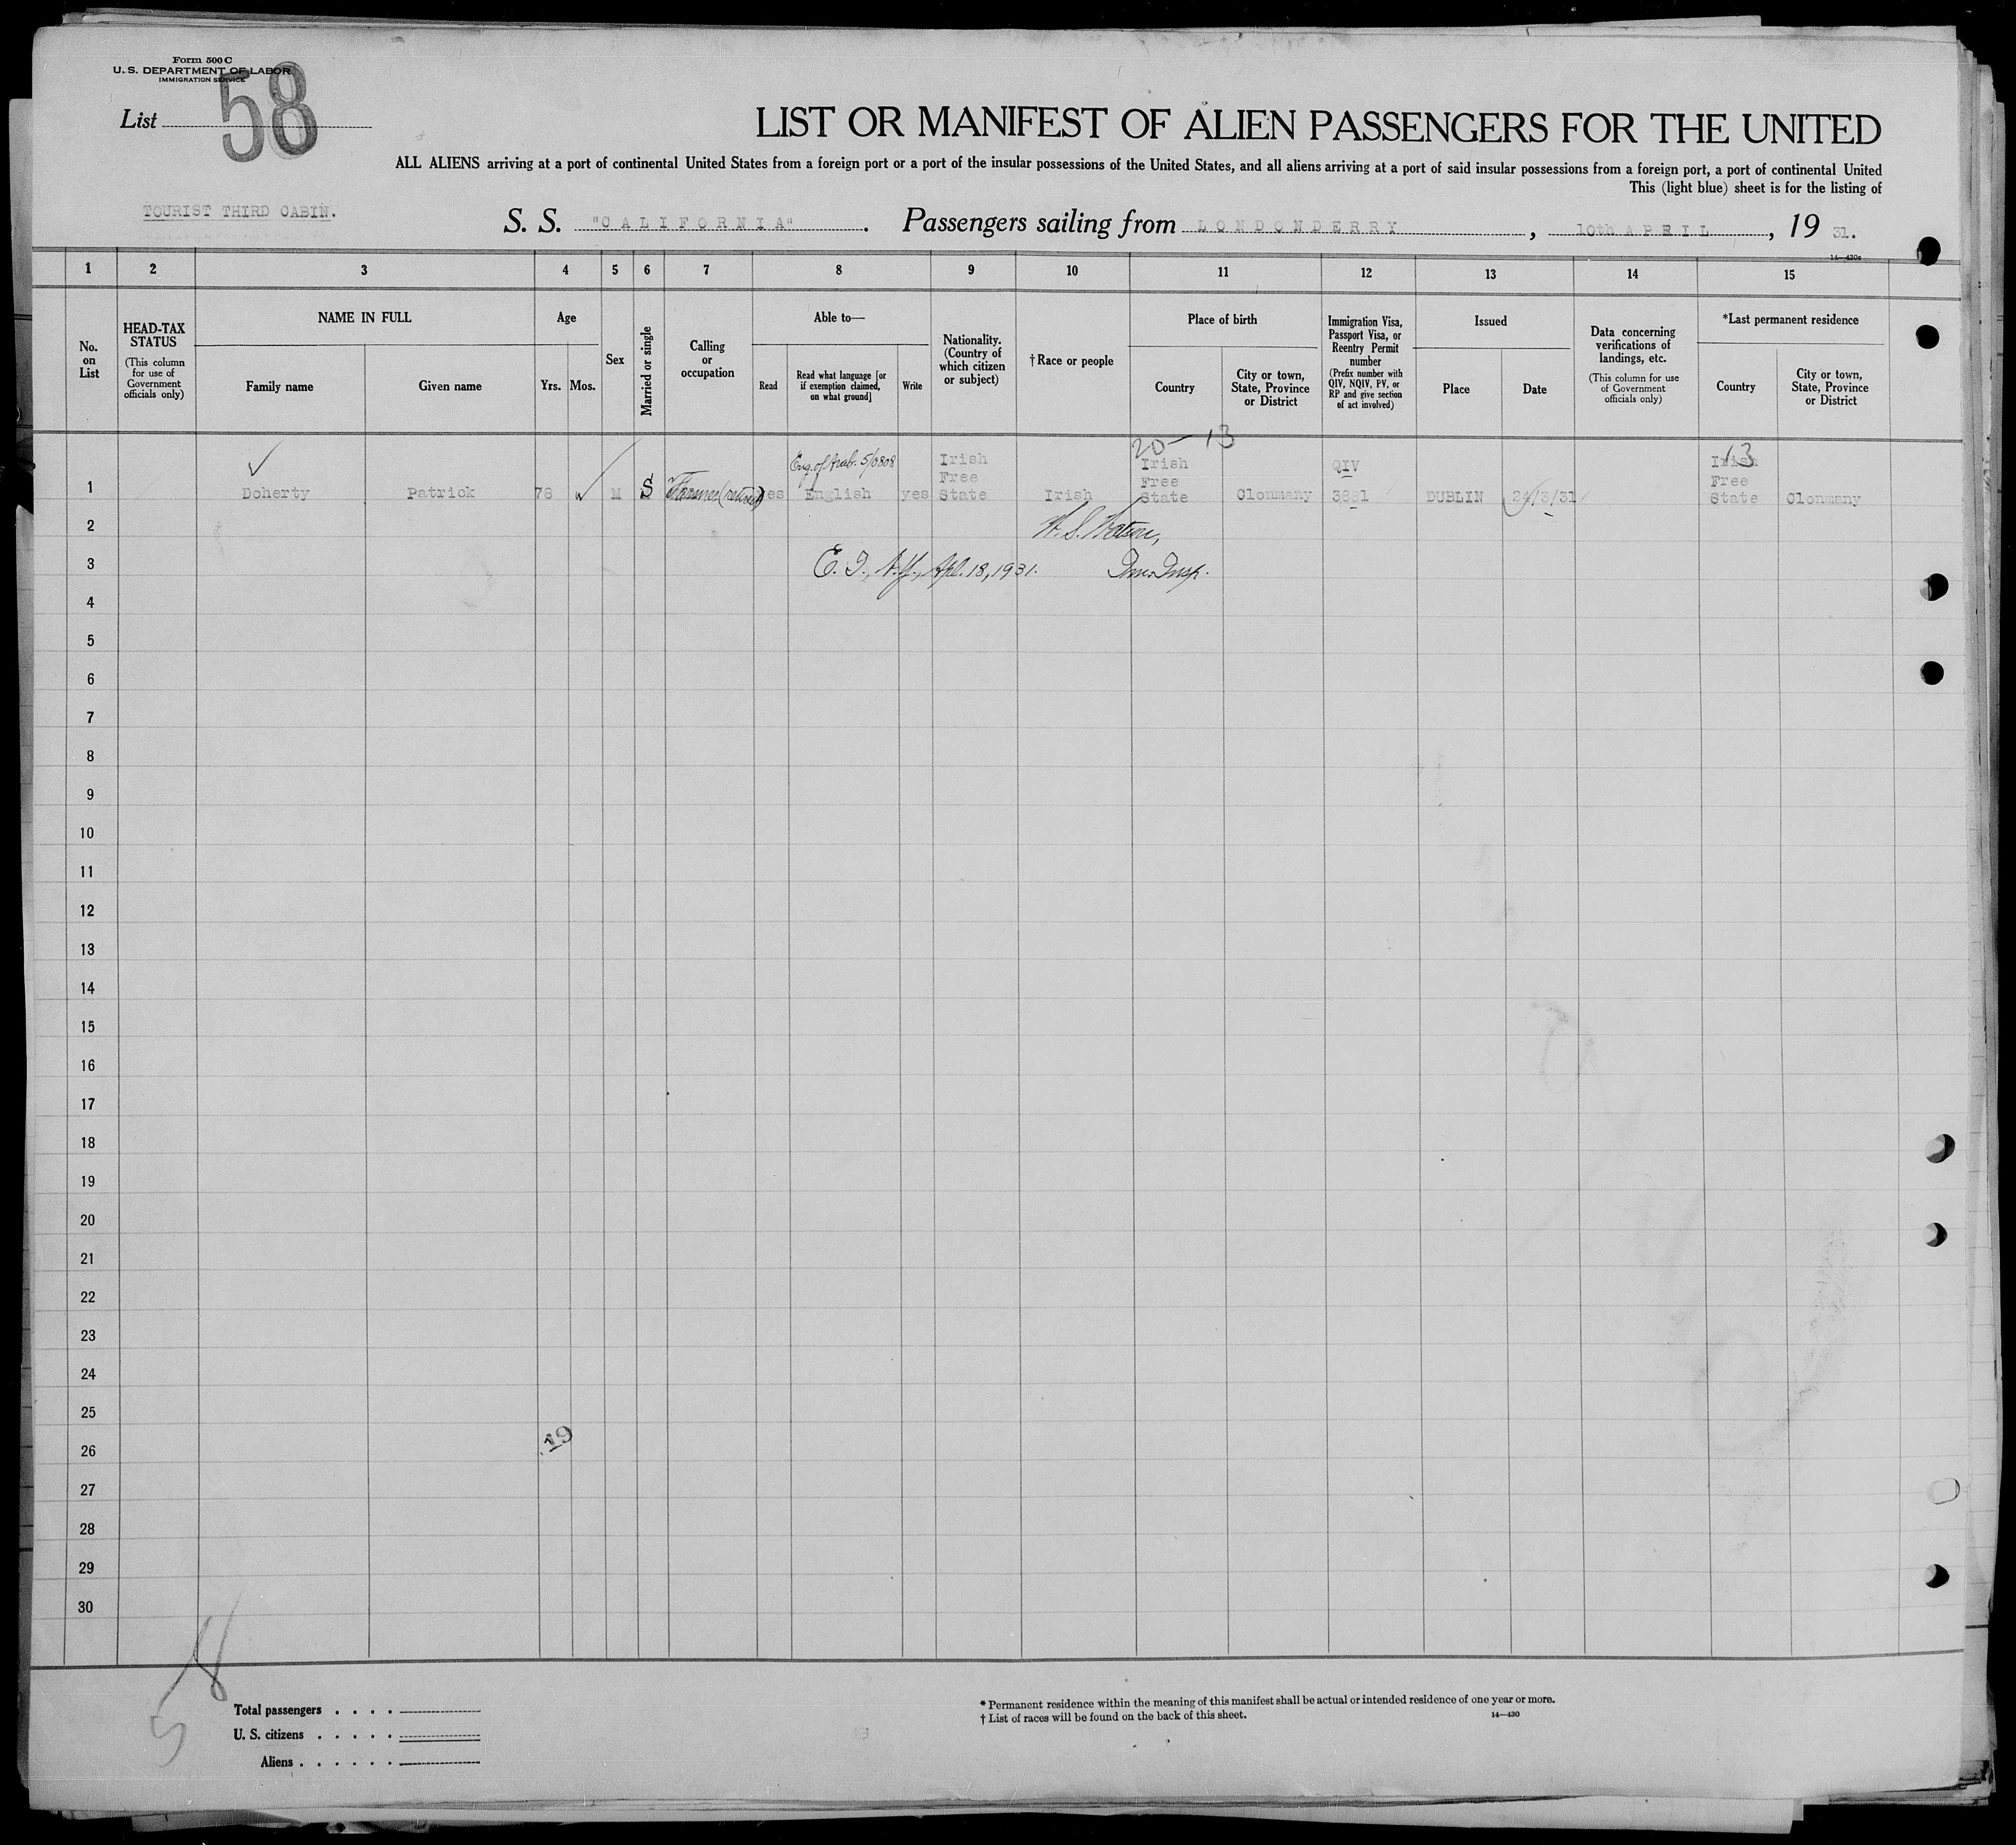 Form 500 C
U. S. DEPARTMENT OF LABOR
IMMIGRATION SERVICE
List 58
LIST OR MANIFEST OF ALIEN PASSENGERS FOR THE UNITED
ALL ALIENS arriving at a port of continental United States from a foreign port or a port of the insular possessions of the United States, and all aliens arriving at a port of said insular possessions from a foreign port, a port of continental United
This (light blue) sheet is for the listing of
TOURIST THIRD CABIN.
S. S. "CALIFORNIA". Passengers sailing from LONDONDERRY, 10th APRIL, 19 31.
14—430a
1 2 3 4 5 6 7 8 9 10 11 12 13 14 15
No. on List
HEAD-TAX STATUS
(This column for use of Government officials only)
NAME IN FULL
Family name
Given name
Age
Yrs. Mos.
Sex
Married or single
Calling or occupation
Able to—
Read
Read what language [or if exemption claimed, on what ground]
Write
Nationality. (Country of which citizen or subject)
† Race or people
Place of birth
Country
City or town, State, Province or District
Immigration Visa, Passport Visa, or Reentry Permit number
(Prefix number with QIV, NQIV, PV, or RP and give section of act involved)
Issued
Place
Date
Data concerning verifications of landings, etc.
(This column for use of Government officials only)
*Last permanent residence
Country
City or town, State, Province or District
20 - 13
13
1 Doherty Patrick 78 M S Farmer (retired) yes English yes Irish Free State Irish Irish Free State Clonmany QIV 3881 DUBLIN 24/3/31 Irish Free State Clonmany
2 W. S. Watson,
3 E. I., N.Y., Apl. 18, 1931. Imm. Insp.
4
5
6
7
8
9
10
11
12
13
14
15
16
17
18
19
20
21
22
23
24
25
26
19
27
28
29
30
58
Total passengers . . . .
U. S. citizens . . . . .
Aliens . . . . . .
* Permanent residence within the meaning of this manifest shall be actual or intended residence of one year or more.
† List of races will be found on the back of this sheet.
14—430